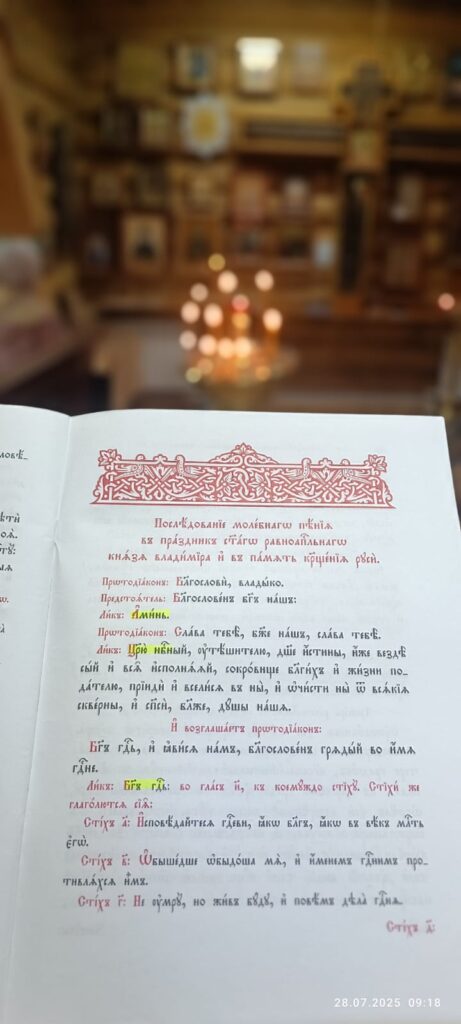 Послѣ́дованїе моле́бнагѡ пѣ́нїѧ
въ пра́здникъ ст҃а́гѡ равноап҃льнагѡ
кнѧ́зѧ влади́мїра и҆ въ па́мѧть кр҃ще́нїѧ рꙋсѝ.
Прѡтодїа́конъ: Бл҃гословѝ, влады́ко.
Предстоѧ́тель: Бл҃гослове́нъ бг҃ъ на́шъ:
Ли́къ: А҆ми́нь.
Прѡтодїа́конъ: Сла́ва тебѣ̀, бж҃е на́шъ, сла́ва тебѣ̀.
Ли́къ: Цр҃ю̀ нбⷭ҇ный, ᲂу҆тѣ́шителю, дш҃е и҆́стины, и҆́же вездѣ̀
сы́й и҆ всѧ̑ и҆сполнѧ́ѧй, сокро́вище бл҃ги́хъ и҆ жи́зни по-
да́телю, прїидѝ и҆ всели́сѧ въ ны̀, и҆ ѡ҆чи́сти ны̀ ѿ всѧ́кїѧ
скве́рны, и҆ сп҃сѝ, бл҃же, дꙋ́шы на́шѧ.
И҆ возглаша́етъ прѡтодїа́конъ:
Бг҃ъ гдⷭ҇ь, и҆ ꙗ҆ви́сѧ на́мъ, бл҃гослове́нъ грѧды́й во и҆́мѧ
гдⷭ҇не.
Ли́къ: Бг҃ъ гдⷭ҇ь: во гла́съ и҃, къ коемꙋ́ждо стїхꙋ̀. Стїхѝ же
глаго́лютсѧ сїѧ̑:
Сті́хъ а҃: И҆сповѣ́дайтесѧ гдⷭ҇еви, ꙗ҆́кѡ бл҃гъ, ꙗ҆́кѡ въ вѣ́къ млⷭ҇ть
є҆гѡ̀.
Сті́хъ в҃: Ѡ҆быше́дше ѡ҆быдо́ша мѧ̀, и҆ и҆́менемъ гдⷭ҇нимъ про-
тивлѧ́хсѧ и҆̀мъ.
Сті́хъ г҃: Не ᲂу҆мрꙋ̀, но жи́въ бꙋ́дꙋ, и҆ повѣ́мъ дѣла̀ гдⷭ҇нѧ.
Сті́хъ д҃:
28.07.2025 09:18